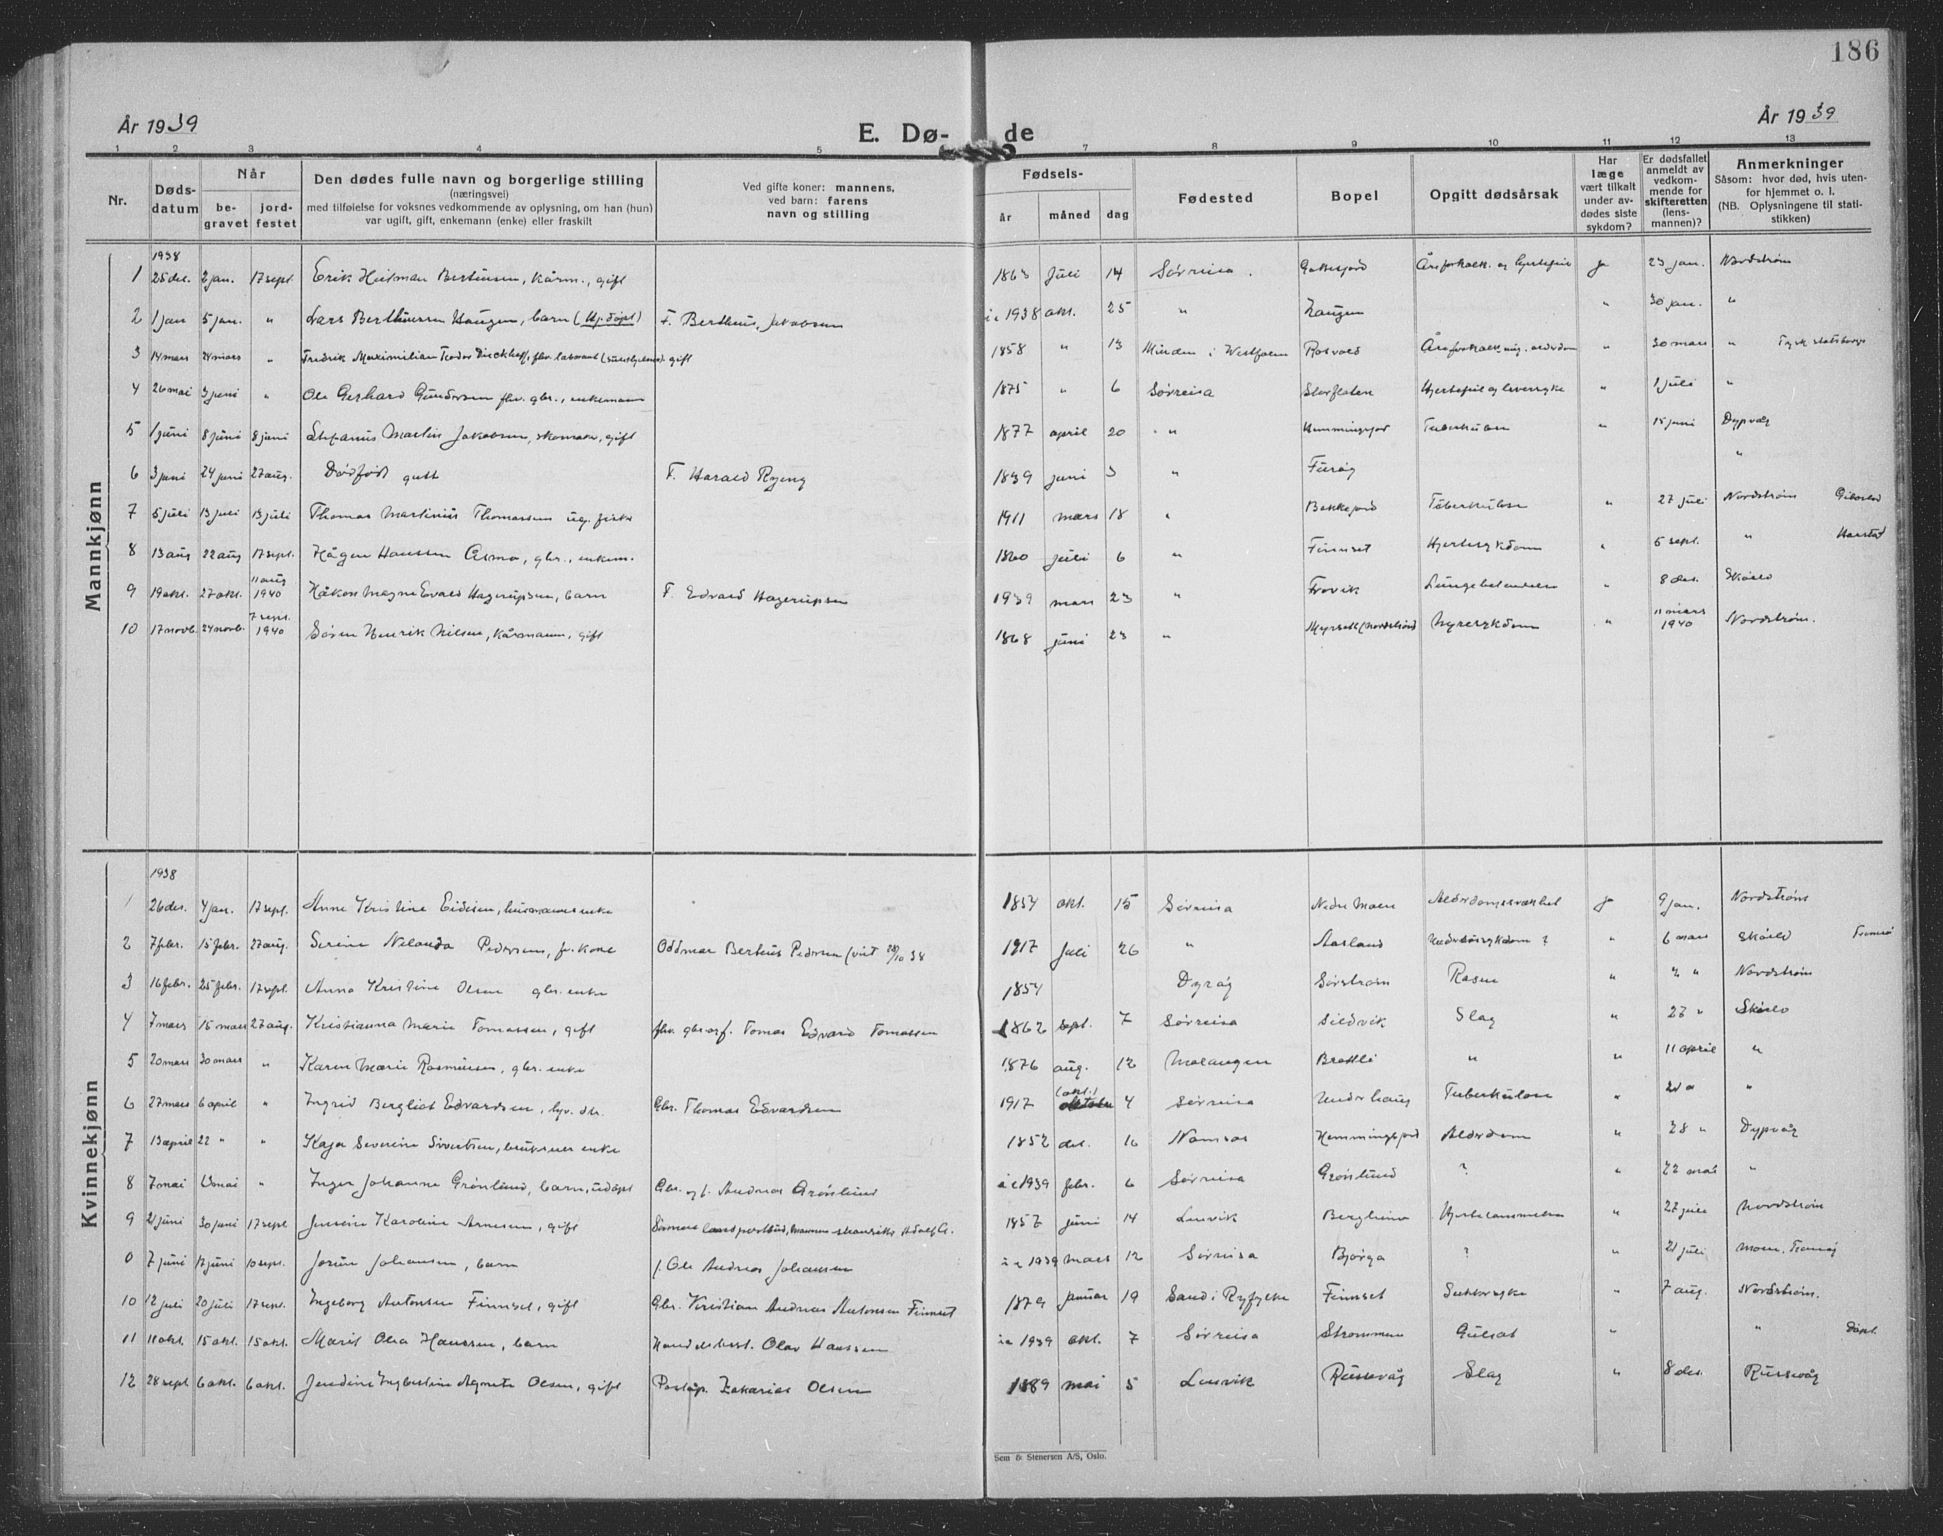 186
År 1939
E. Dø- de
År 1939
1 2 3 4 5 7 8 9 10 11 12 13
Nr.
Døds-datum
Når
be-gravet
jord-festet
Den dødes fulle navn og borgerlige stilling
(næringsvei)
med tilføielse for voksnes vedkommende av oplysning, om han (hun)
var ugift, gift, enkemann (enke) eller fraskilt
Ved gifte koner: mannens,
ved barn: farens
navn og stilling
Fødsels-
år
måned
dag
Fødested
Bopel
Opgitt dødsårsak
Har læge vært tilkalt under av-dødes siste sykdom?
Er dødsfallet anmeldt av vedkom-mende for skifteretten (lens-mannen)?
Anmerkninger
Såsom: hvor død, hvis uten-
for hjemmet o. l.
(NB. Oplysningene til stati-
stikken)
Mannkjønn
1938
1 25 des. 2 jan. 17 sept. Erik Hitman Bertinsen, kårm., gift 1863 Juli 14 Sørreisa. Åreforkalk. og hjertefeil Ja 23 jan. Nordstrøm
2 1 jan 5 jan. " Lars Berthinsen Haugen, barn (Hj. døpt) F. Berthus Jakobsen i e 1938 okt. 25 " Haugen " 30 jan. "
3 14 mars 24 mars " Fredrik Maximilian Teodor gift 1858 " 13 Minden i Westfalen Rosvold Åreforkalkning, alderdom " 30 mars " Tysk statsborger
4 26 mai 3 juni " Ole Gerhard Gundersen fhv. gbr., enkemann 1875 " 6 Sørreisa Storflaten Hjertefeil og leversyke " 1 juli "
5 1 juni 8 juni 8 juni Stefanus Martin Jakobsen, skomaker, gift 1877 april 20 " Hemmingsjord Tuberkulose " 15 juni Dypvåg
6 3 juni 24 juni 27 aug. Dødfødt gutt F. Harald Ryeng 1939 juni 3 " Furøy "
7 5 juli 13 juli 13 juli Thomas Martinius Thomassen ug. fisker 1911 mars 18 " Bekkejord Tuberkulose " 27 juli Nordstrøm Gibostad
8 13 aug 22 aug 17 sept. Hågen Hanssen Asmo, gbr., enkem. 1860 juli 6 " Finnset Hjertesykdom " 5 sept. " Harstad
9 19 okt. 27 okt. 11 aug 1940 Håkon Magne Evald Hagerupsen, barn F. Edvald Hagerupsen 1939 mars 23 " Frovik Lungebetendelse " 8 des. Skøelv
10 17 novb. 24 novb. 7 sept. 1940 Søren Henrik Nilsen, kårmann, gift 1868 juni 23 " Myrbakk (Nordstrøm) Nyresykdom " 11 mars 1940 Nordstrøm.
Kvinnekjønn
1938
1 26 des. 4 jan. 17 sept. Anne Kristine Eidissen, husmannsenke 1854 okt. 15 Sørreisa Nedre Moen Alderdomssvakhet Ja 9 jan. Nordstrøm
2 7 febr. 15 febr. 27 aug. Serine Nelanda Pedersen, fr. kone Oddmar Bertheus Pedersen (viet 28/10 38 1917 Juli 26 " Aasland Underlivssykdom ? " 6 mars Skøelv Tromsø
3 16 febr. 25 febr. 17 sept. Anna Kristine Olsen gbr. enke 1854 Dyrøy Sørstrøm Rosen " " " Nordstrøm
4 7 mars 15 mars 27 aug. Kristianna Marie Tomassen, gift fhv. gbr og f. Tomas Edvard Tomassen 1862 sept. 7 Sørreisa Sildvik Slag " 27 " Skøelv
5 20 mars 30 mars " Karen Marie Rasmussen, gbr. enke 1876 aug. 12 Malangen Brattli " " 11 april "
6 27 mars 6 april " Ingrid Bergliot Edvardsen, hjv. dtr. Gbr. Thomas Edvardsen 1917 (okt.) 4 Sørreisa Underhaug Tuberkulose " 21 " "
7 13 april 22 " " Kaja Severine Sivertsen, bruksner enke 1852 des. 16 Namsos Hemmingsjord Alderdom " 28 " Dypvåg
8 7 mai 13 mai " Inger Johanne Grønlund, barn, udøpt Gbr. og f. Andreas Grønlund i e 1939 febr. 6 Sørreisa Grønlund ? " 22 mai "
9 21 juni 30 juni 17 sept Jensine Karoline Arnesen, gift 1857 juni 14 Lenvik Berglima Hjertelammelse " 27 juli Nordstrøm
0 7 juni 17 juni 10 sept. Jorun Johansen, barn f. Ole Andreas Johansen i e 1939 mars 12 Sørreisa Bjørga ? " 21 juli Moen. Tromsø
10 12 juli 20 juli 17 sept. Ingeborg Antonsen Finnset, gift Gbr. Kristian Andreas Antonsen Finnset 1879 januar 19 Sand i Ryfylke Finnset Sukkersyke " 7 aug. Nordstrøm.
11 11 okt. 15 okt. 15 okt. Marit Olea Hanssen, barn Handelsbest. Olav Hanssen i e 1939 okt. 7 Sørreisa Strømmen Gulsot " " Døpt.
12 28 sept 6 okt. 6 okt. Jendine Ingbertine Agnete Olsen, gift Poståp. Zakarias Olsen 1889 mai 5 Lenvik Russevåg Slag " 8 des. Russevåg
Sem & Stenersen A/S, Oslo.